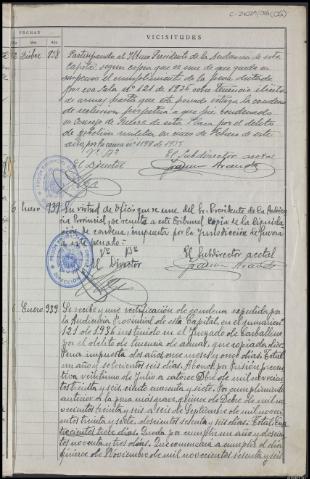 C-21079/36 (26)
FECHAS
VICISITUDES
Día Mes Año
Dicbre 938 Participando al Iltmo Presidente de la Audiencia de esta
Capital, según copia que se une, de que queda en
suspenso el cumplimiento de la pena dictada
por esa Sala nº 121 de 1936 sobre tenencia ilícita
de armas hasta que este penado extinga la condena
de reclusión perpetua a que fue condenado
en Consejo de Guerra de esta Plaza por el delito
de rebelión militar en de Febrero de este
año, por la causa nº 1198 de 1937
Vº Bº
El Director
El Subdirector acctal
6 Enero 939 En virtud de oficio que se une del Sr. Presidente de la Audien-
cia Provincial, se remite a este Tribunal copia de la liquida-
ción de condena, impuesta por la Jurisdicción de Guerra
a este penado.
Vº Bº
El Director
El Subdirector acctal
Enero 939 Se recibe una rectificación de condena expedida por
la Audiencia Provincial de esta Capital, en el sumario nº
121 de 1936 instruido en el Juzgado de Carballino
por el delito de tenencia de armas, que copiada dice:
Pena impuesta dos años, once meses y once días. Total: Un
año y setecientos seis días. Abono por Prisión preventiva
veintiuno de Julio a catorce Dbre de mil novecien-
tos treinta y seis, ciento cuarenta y siete. Por cumplimiento
anterior a la pena más grave, quince de Dbre de mil no-
vecientos treinta y seis a seis de Septiembre de mil nove-
cientos treinta y siete, doscientos sesenta y seis días. Total: Cua-
trocientos trece días. Queda por cumplir un año y doscien-
tos noventa y tres días. Que comenzará a cumplir el día
quince de Noviembre de mil novecientos sesenta y seis